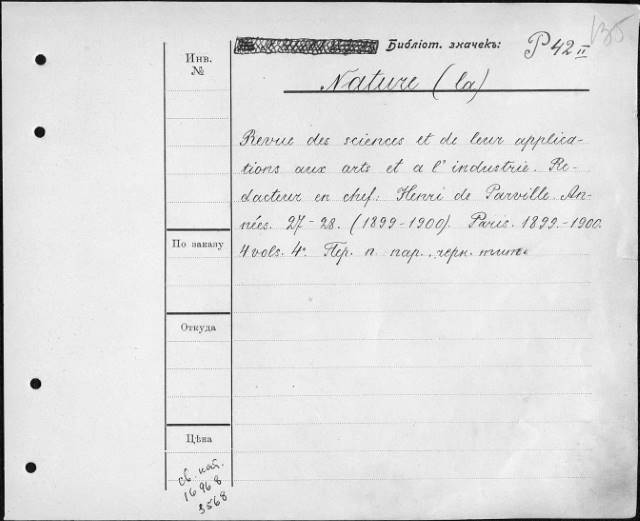 135
Библіот. значекъ: P 42 II
Инв.
№
Nature (la)
Revue des sciences et de leur applica-
tions aux arts et a l'industrie. Re-
dacteur en chef: Henri de Parville. An-
nées. 27-28. (1899-1900). Paris. 1899.-1900.
4 vols. 4°. Пер. п. пар. черн. тит.
По заказу
Откуда
Цѣна
св. кат.
16968
3568